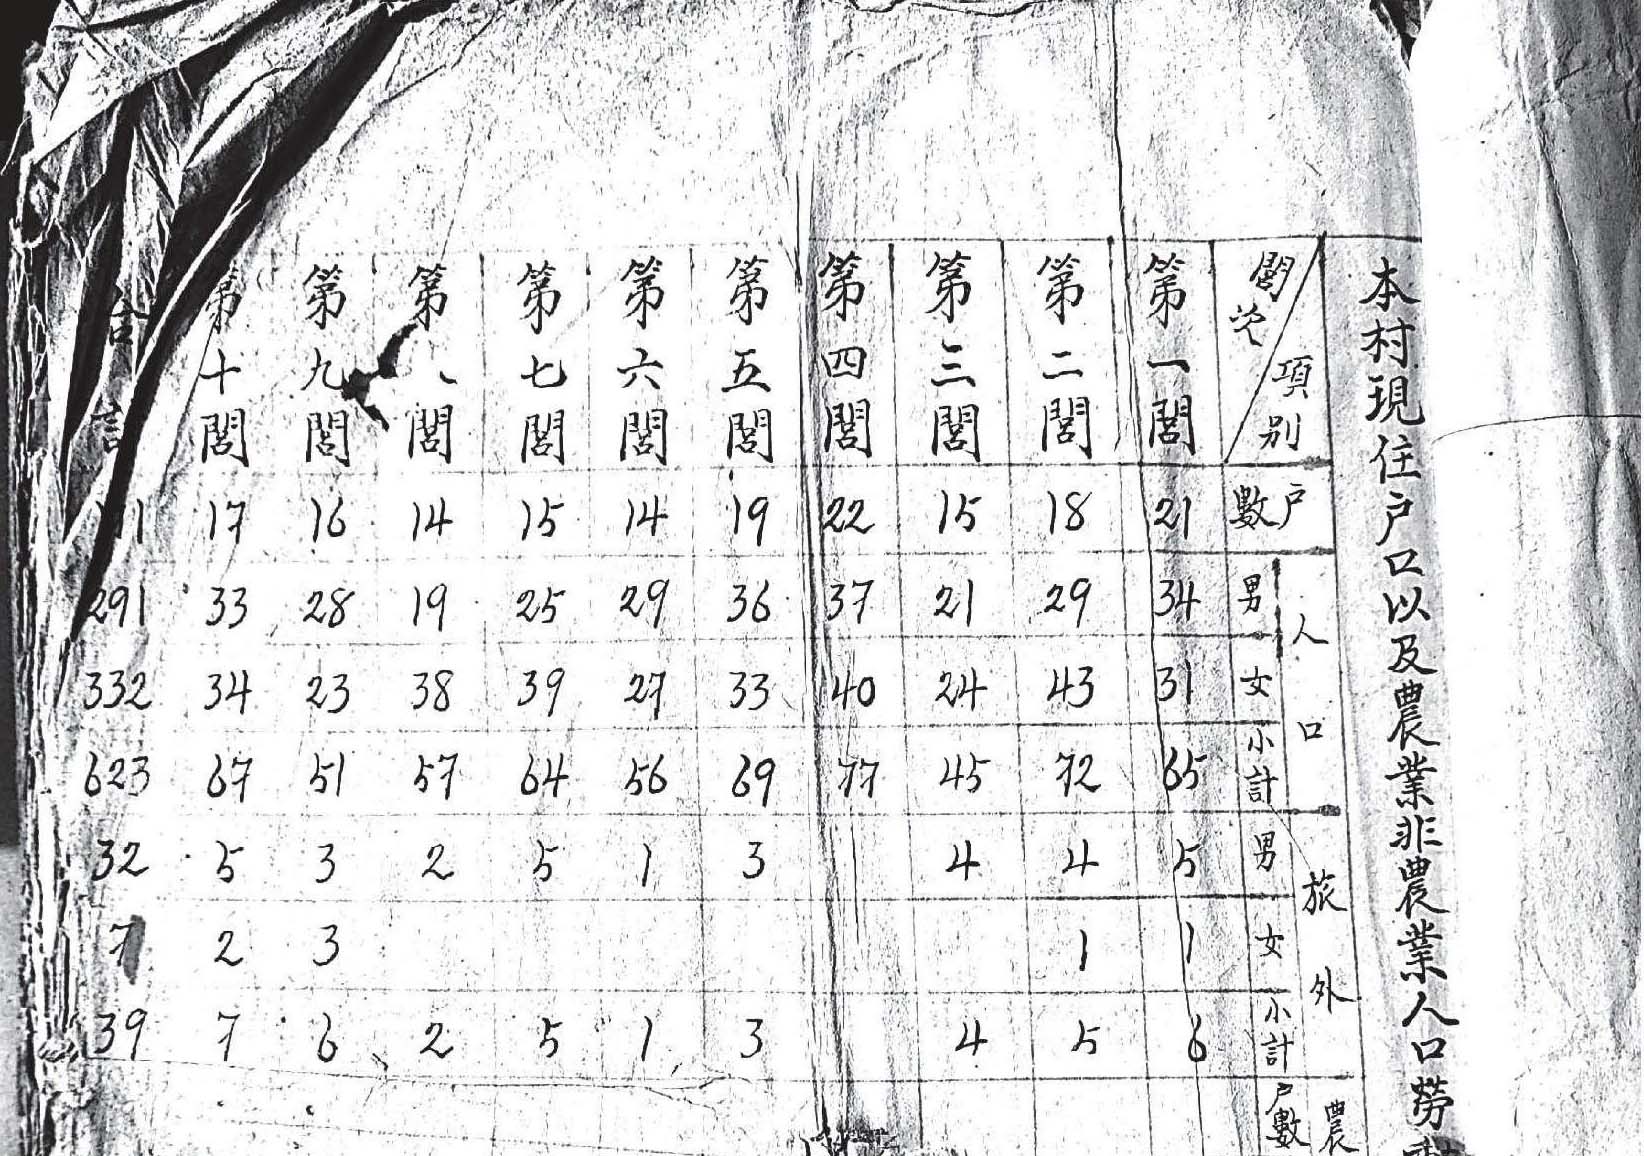 本村現住戶口以及農業非農業人口勞
閭次 項別 戶數 人口 男 女 小計 旅外 男 女 小計 農 戶數
第一閭 21 34 31 65 5 1 6
第二閭 18 29 43 72 4 1 5
第三閭 15 21 24 45 4 4
第四閭 22 37 40 77
第五閭 19 36 33 69 3 3
第六閭 14 29 27 56 1 1
第七閭 15 25 39 64 5 5
第八閭 14 19 38 57 2 2
第九閭 16 28 23 51 3 3 6
第十閭 17 33 34 67 5 2 7
合計 291 332 623 32 7 39